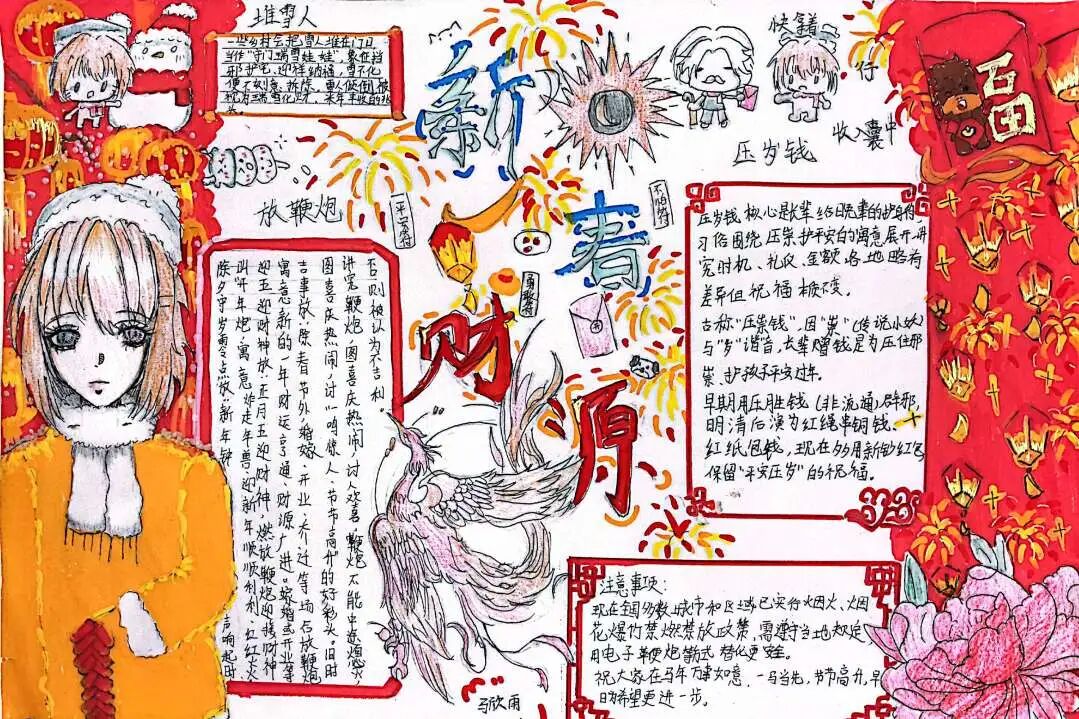 堆雪人
一些乡村会把雪人堆在门口
当作“守门瑞雪娃娃”,象征挡
邪护宅、迎祥纳福,雪不化
便不刻意拆除,
视为瑞雪化水,来年丰收的兆
新春
财源
快籍
行
收入囊中
压岁钱
福
放鞭炮
平安符
不怕符
勇敢符
除夕守岁零点放:新年钟声响起时
叫“开年炮”寓意炸走年兽,迎新年顺顺利利,红红火火
迎五迎财神放:正月五迎财神,燃放鞭炮迎接财神
寓意新的一年财运亨通,财源广进。嫁婚或开业等
吉事放:除春节外,婚嫁、开业、乔迁等场合放鞭炮
图喜庆热闹,讨“响惊人、节节高升”的好彩头。旧时
讲究鞭炮,图喜庆热闹,讨人欢喜,鞭炮不能中途熄灭
否则被认为不吉利。
压岁钱核心是长辈给晚辈的护身符
习俗围绕压祟护平安的寓意展开,讲
究时机、礼仪、金额,各地略有
差异但祝福不变。
古称“压祟钱”,因“祟”(传说小妖)
与“岁”谐音,长辈赠钱是为压住邪
祟、护孩子平安过年。
早期用压胜钱(非流通)辟邪,
明清后演为红绳串铜钱、
红纸包钱,现在多用新钞红包
保留“平安压岁”的祝福。
注意事项:
现在全国多数城市和区域已实行烟火、烟
花爆竹禁燃禁放政策,需遵守当地规定
用电子鞭炮等形式替代更安全。
祝大家在马年万事如意,一马当先,节节高升,早
日的希望更进一步。
马欣雨